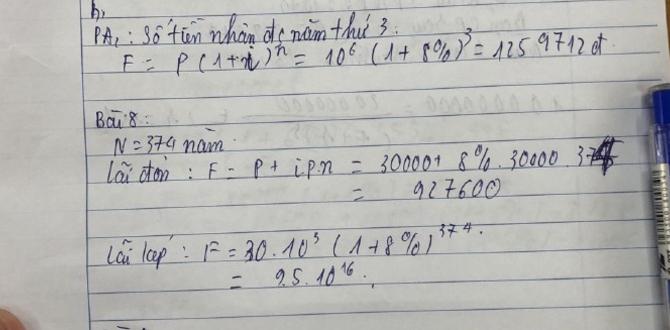 b,
PA₁: Số tiền nhận đc năm thứ 3:
F = P(1+i)ⁿ = 10⁶ (1+8%)³ = 1259712 đ
Bài 8:
N = 374 năm.
Lãi đơn: F = P + i.P.n = 30000 + 8%. 30000. 374
= 927600
Lãi kép: F = 30.10³ (1+8%)³⁷⁴.
= 9.5.10¹⁶.